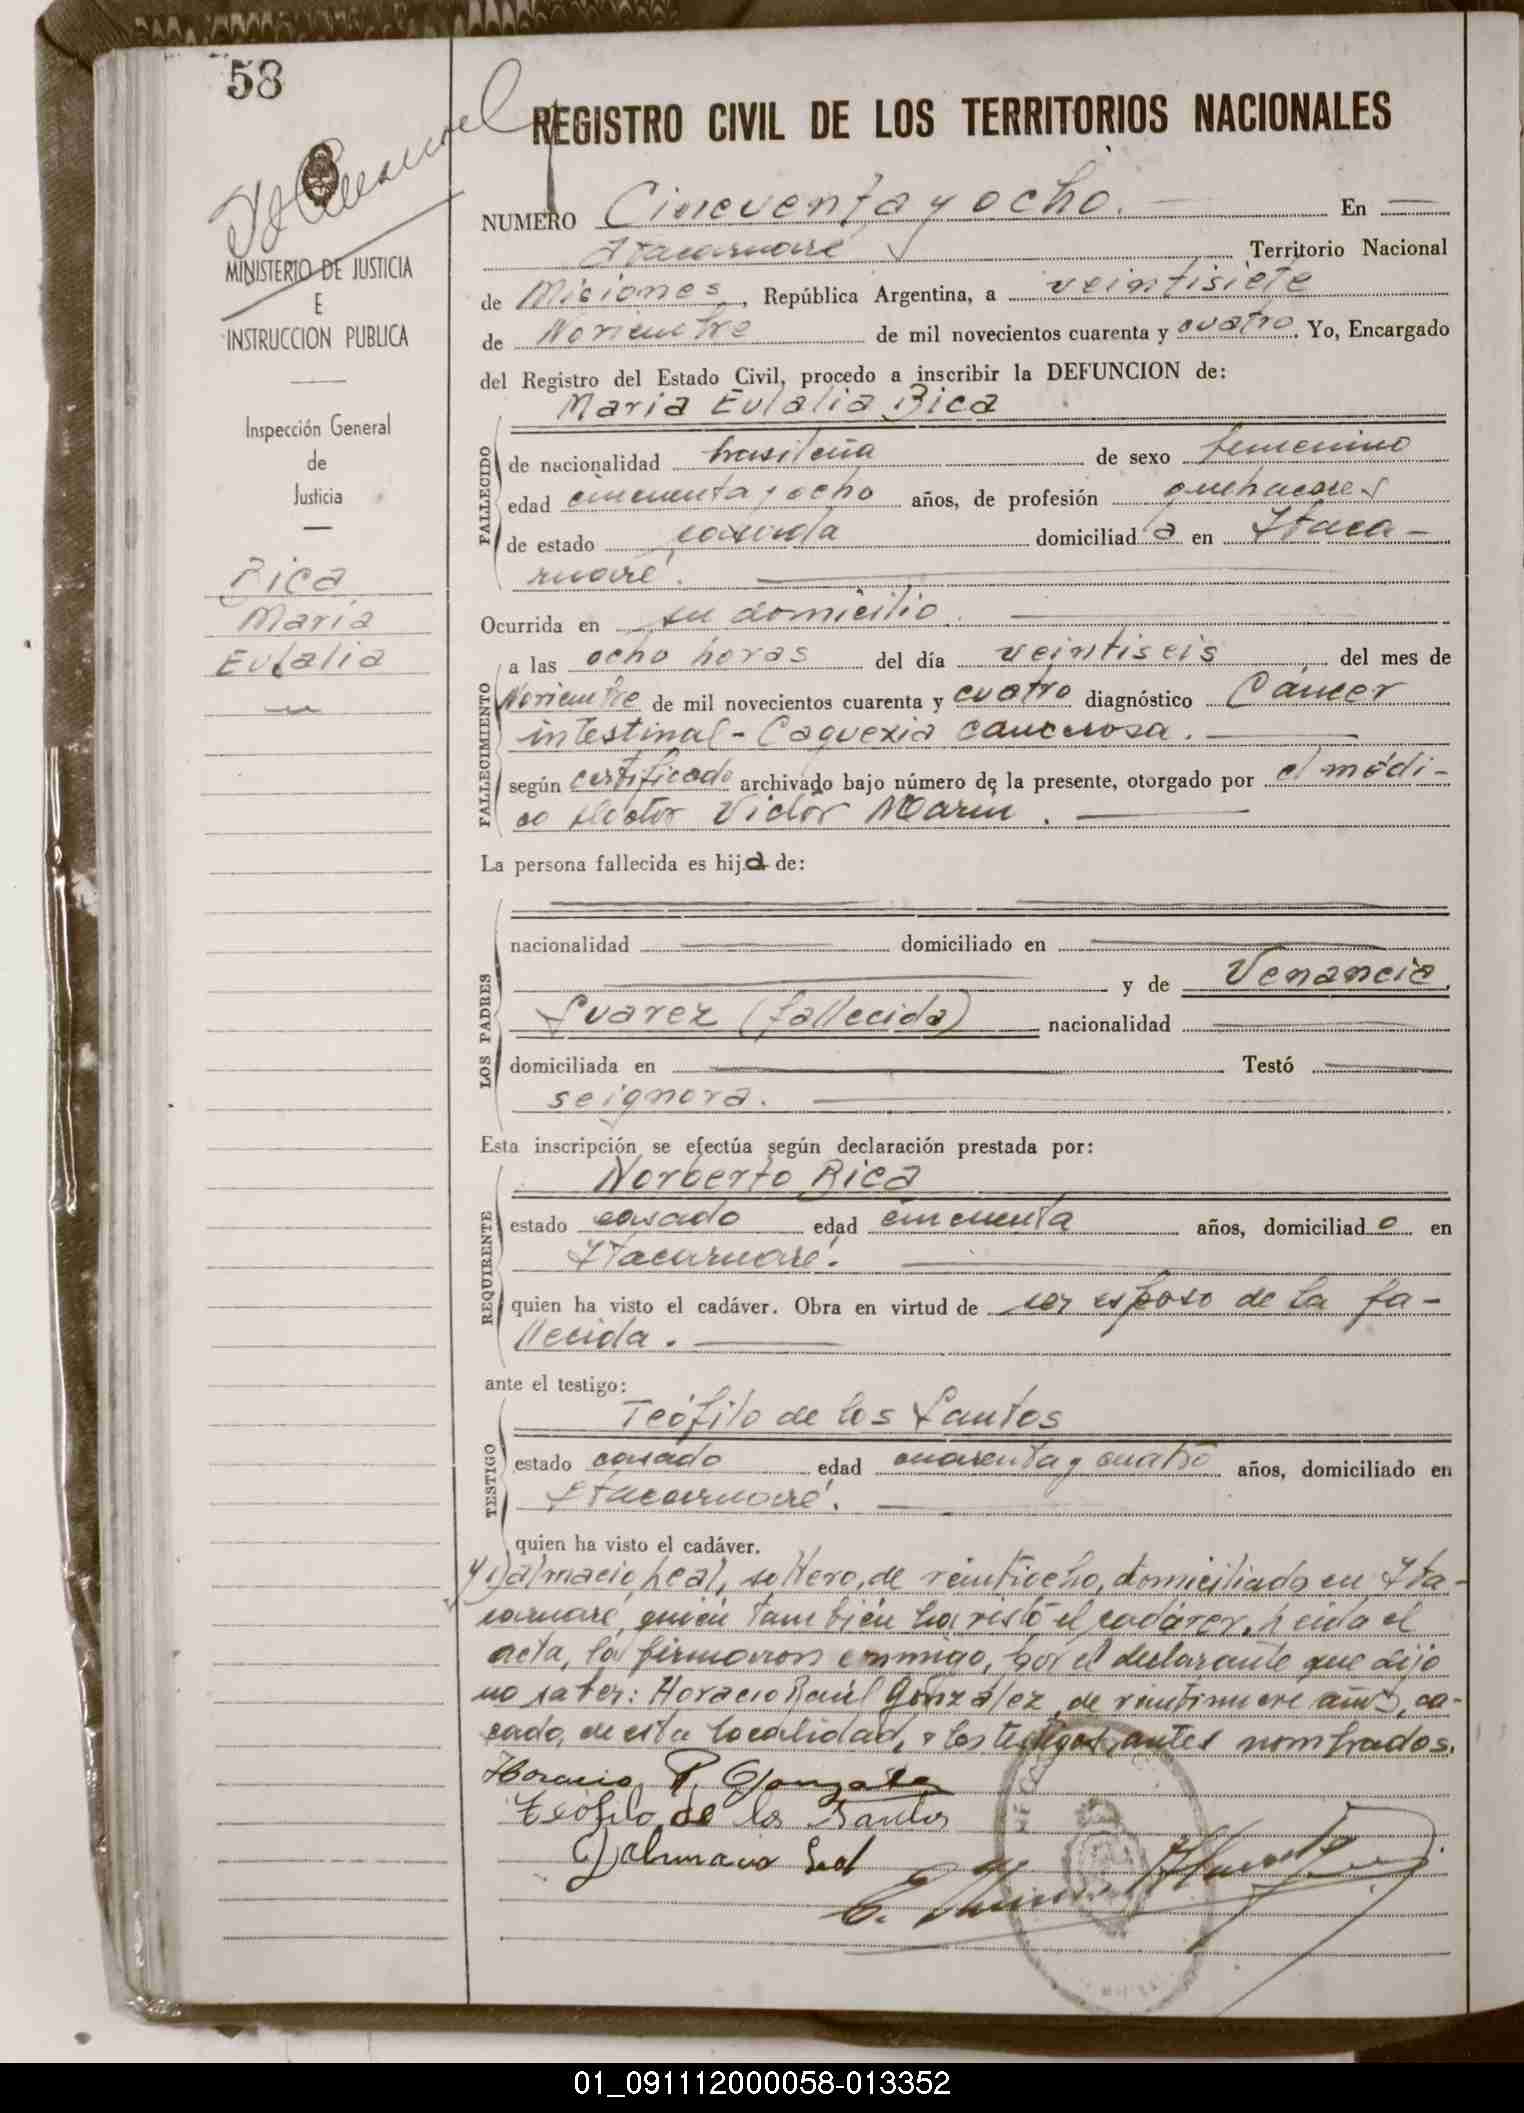 58
REGISTRO CIVIL DE LOS TERRITORIOS NACIONALES
MINISTERIO DE JUSTICIA
E
INSTRUCCION PUBLICA
Inspección General
de
Justicia
Bica
Maria
Eulalia
NUMERO Cincuenta y ocho. En
Itacaruaré Territorio Nacional
de Misiones, República Argentina, a veintisiete
de Noviembre de mil novecientos cuarenta y cuatro. Yo, Encargado
del Registro del Estado Civil, procedo a inscribir la DEFUNCION de:
Maria Eulalia Bica
FALLECIDO
de nacionalidad brasileña de sexo femenino
edad cincuenta y ocho años, de profesión quehaceres
de estado casada domiciliada en Itaca-
ruaré.
Ocurrida en su domicilio.
FALLECIMIENTO
a las ocho horas del día veintiseis del mes de
Noviembre de mil novecientos cuarenta y cuatro diagnóstico Cáncer
intestinal - Caquexia cancerosa.
según certificado archivado bajo número de la presente, otorgado por el médi-
co doctor Victor Marin.
La persona fallecida es hija de:
LOS PADRES
nacionalidad domiciliado en
y de Venancia
Suarez (fallecida) nacionalidad
domiciliada en Testó
se ignora.
Esta inscripción se efectúa según declaración prestada por:
Norberto Bica
REQUIRENTE
estado casado edad cincuenta años, domiciliado en
Itacaruaré.
quien ha visto el cadáver. Obra en virtud de ser esposo de la fa-
llecida.
ante el testigo:
Teófilo de los Santos
TESTIGO
estado casado edad cuarenta y cuatro años, domiciliado en
Itacaruaré.
quien ha visto el cadáver.
y Dalmacio Leal, soltero, de veintiocho, domiciliado en Ita-
caruaré, quien también ha visto el cadáver. Leida el
acta, la firmaron conmigo, por el declarante que dijo
no saber: Horacio Raúl González, de veintinueve años, ca-
sado, de esta localidad, y los testigos antes nombrados.
Horacio R. Gonzalez
Teófilo de los Santos
Dalmacio Leal
01_091112000058-013352